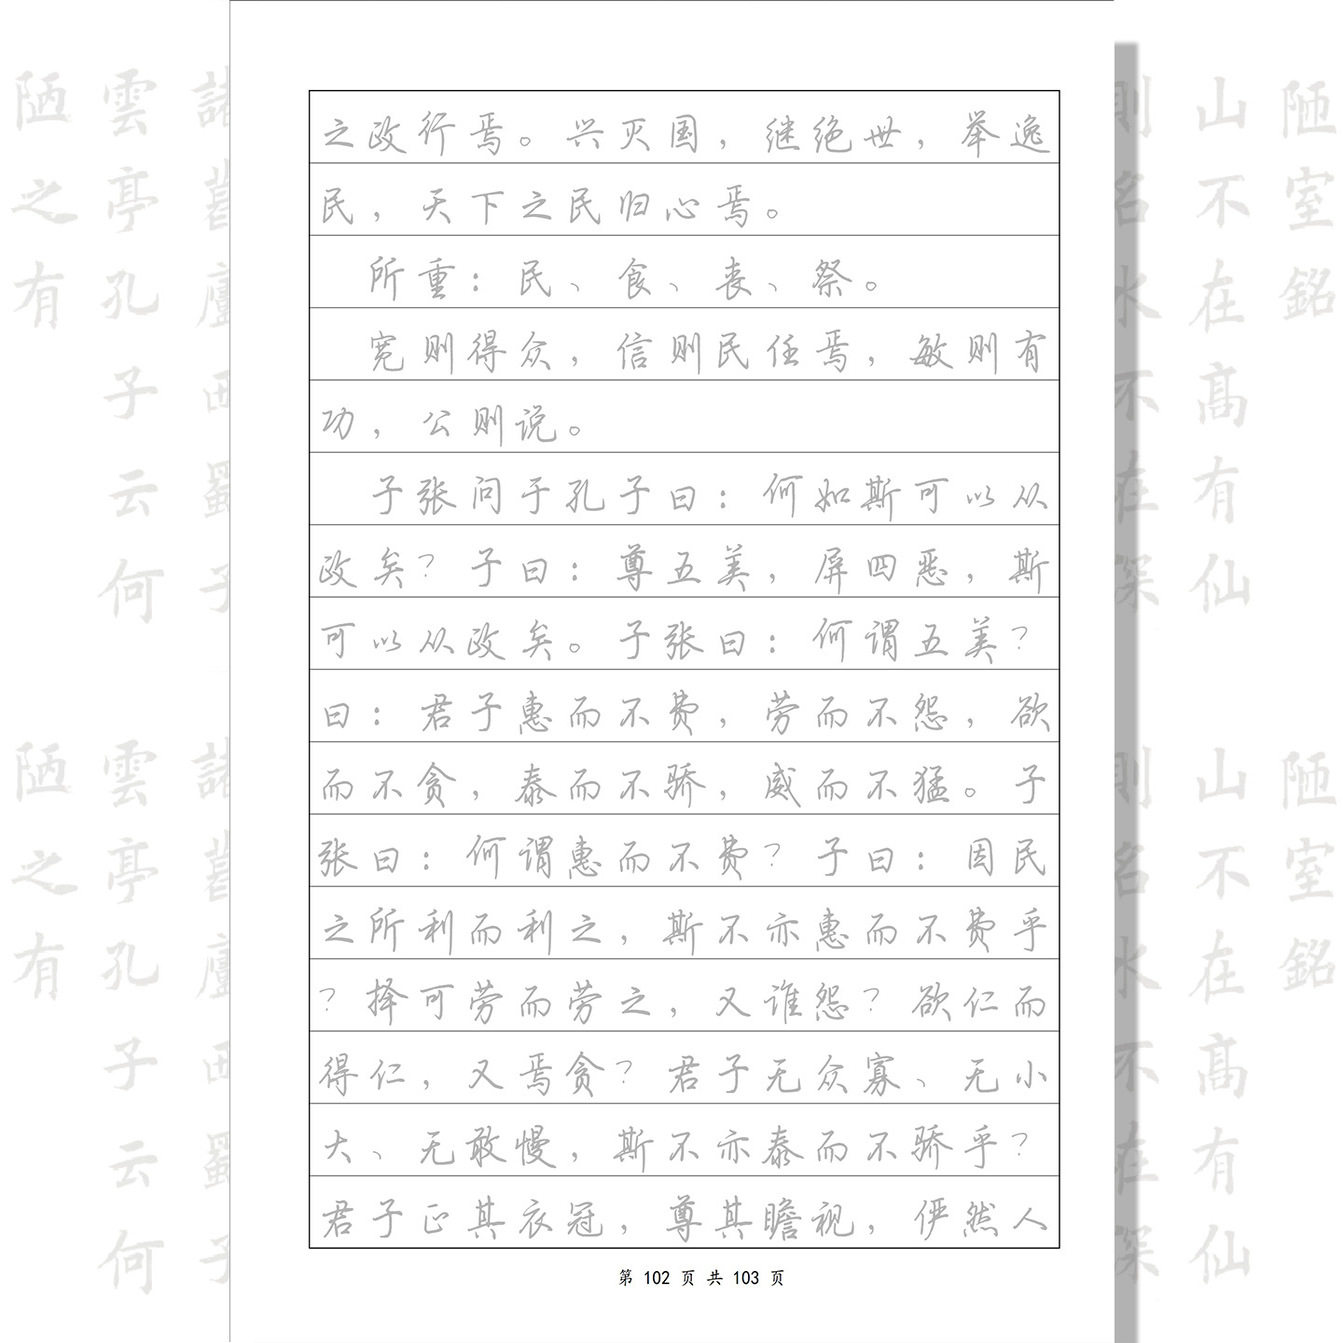 之政行焉。兴灭国，继绝世，举逸
民，天下之民归心焉。
所重：民、食、丧、祭。
宽则得众，信则民任焉，敏则有
功，公则说。
子张问于孔子曰：何如斯可以从
政矣？子曰：尊五美，屏四恶，斯
可以从政矣。子张曰：何谓五美？
曰：君子惠而不费，劳而不怨，欲
而不贪，泰而不骄，威而不猛。子
张曰：何谓惠而不费？子曰：因民
之所利而利之，斯不亦惠而不费乎
？择可劳而劳之，又谁怨？欲仁而
得仁，又焉贪？君子无众寡、无小
大、无敢慢，斯不亦泰而不骄乎？
君子正其衣冠，尊其瞻视，俨然人
第 102 页 共 103 页
陋室銘
山不在高有仙
則名水不在深
諸葛廬西蜀子
雲亭孔子云何
陋之有
陋室銘
山不在高有仙
則名水不在深
諸葛廬西蜀子
雲亭孔子云何
陋之有